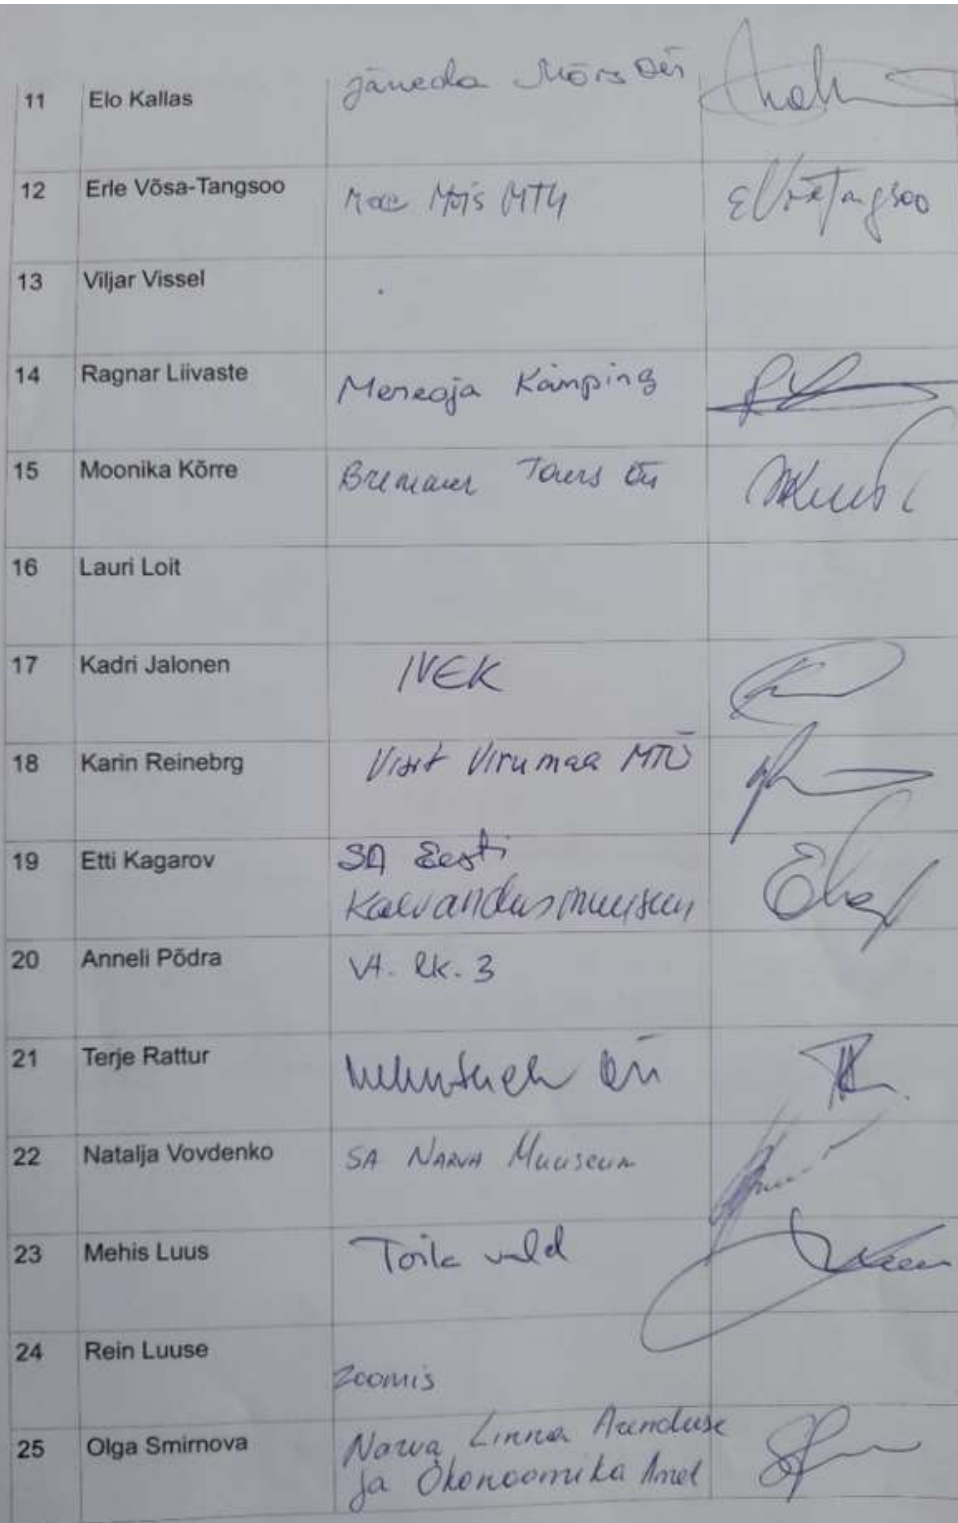 11 Elo Kallas Jäneda Mõis OÜ
12 Erle Võsa-Tangsoo Mõis MTÜ EVõsaTangsoo
13 Viljar Vissel
14 Ragnar Liivaste Mereoja Kämping
15 Moonika Kõrre Bremauer Tours OÜ
16 Lauri Loit
17 Kadri Jalonen IVEK
18 Karin Reinebrg Visit Virumaa MTÜ
19 Etti Kagarov SA Eesti
Kaevandusmuuseum
20 Anneli Põdra Vt. lk. 3
21 Terje Rattur OÜ
22 Natalja Vovdenko SA NARVA Muuseum
23 Mehis Luus Toila vald
24 Rein Luuse Zoomis
25 Olga Smirnova Narva Linna Arenduse
ja Ökonoomika Amet